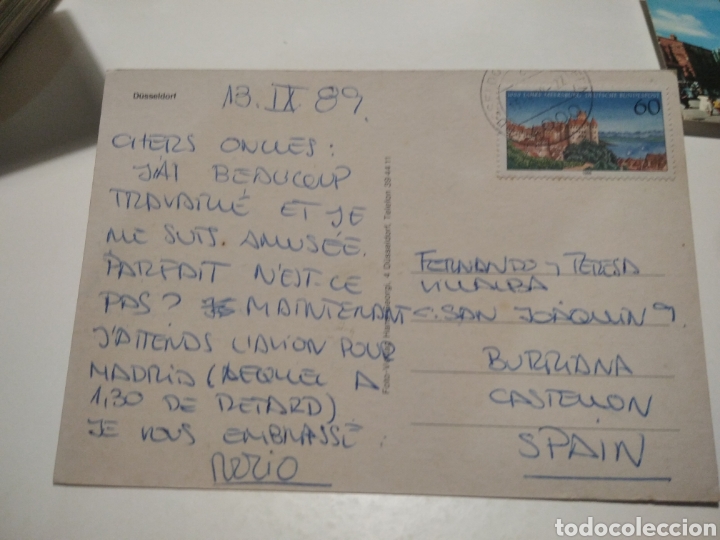 Düsseldorf
13. IX 89.
CHERS ONCLES:
J'AI BEAUCOUP
TRAVAILLÉ ET JE
ME SUIS AMUSÉE.
PARFAIT N'EST-CE
PAS? MAINTENANT
J'ATTENDS L'AVION POUR
MADRID (LEQUEL A
1,30 DE RETARD)
JE VOUS EMBRASSE:
ROCIO
4 Düsseldorf, Telefon 39 44 11
60
FERNANDO y TERESA
VILLALBA
C. SAN JOAQUIN 9
BURRIANA
CASTELLON
SPAIN
todocoleccion